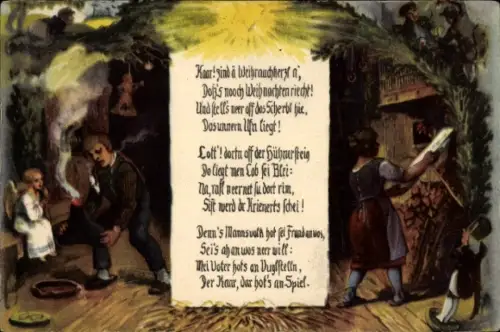 Kaar! zind ä Weihrauchherzl a',
Dass's nooch Weihnachten riecht!
Und stell's neer aff das Scherbl hie,
Das unnern Ufn liegt!
Lott'! dortn aff der Hühnersteig
Do liegt men Lob sei Blei:
Na, raff neer net su dort rim,
Sist werd dr Krienerts schei!
Denn's Mannsvolk hot sei Fraad an wos,
Sei's ah an wos neer will:
Mei Voter hots an Vuglstelln,
Der Kaar, dar hot's an Spiel.